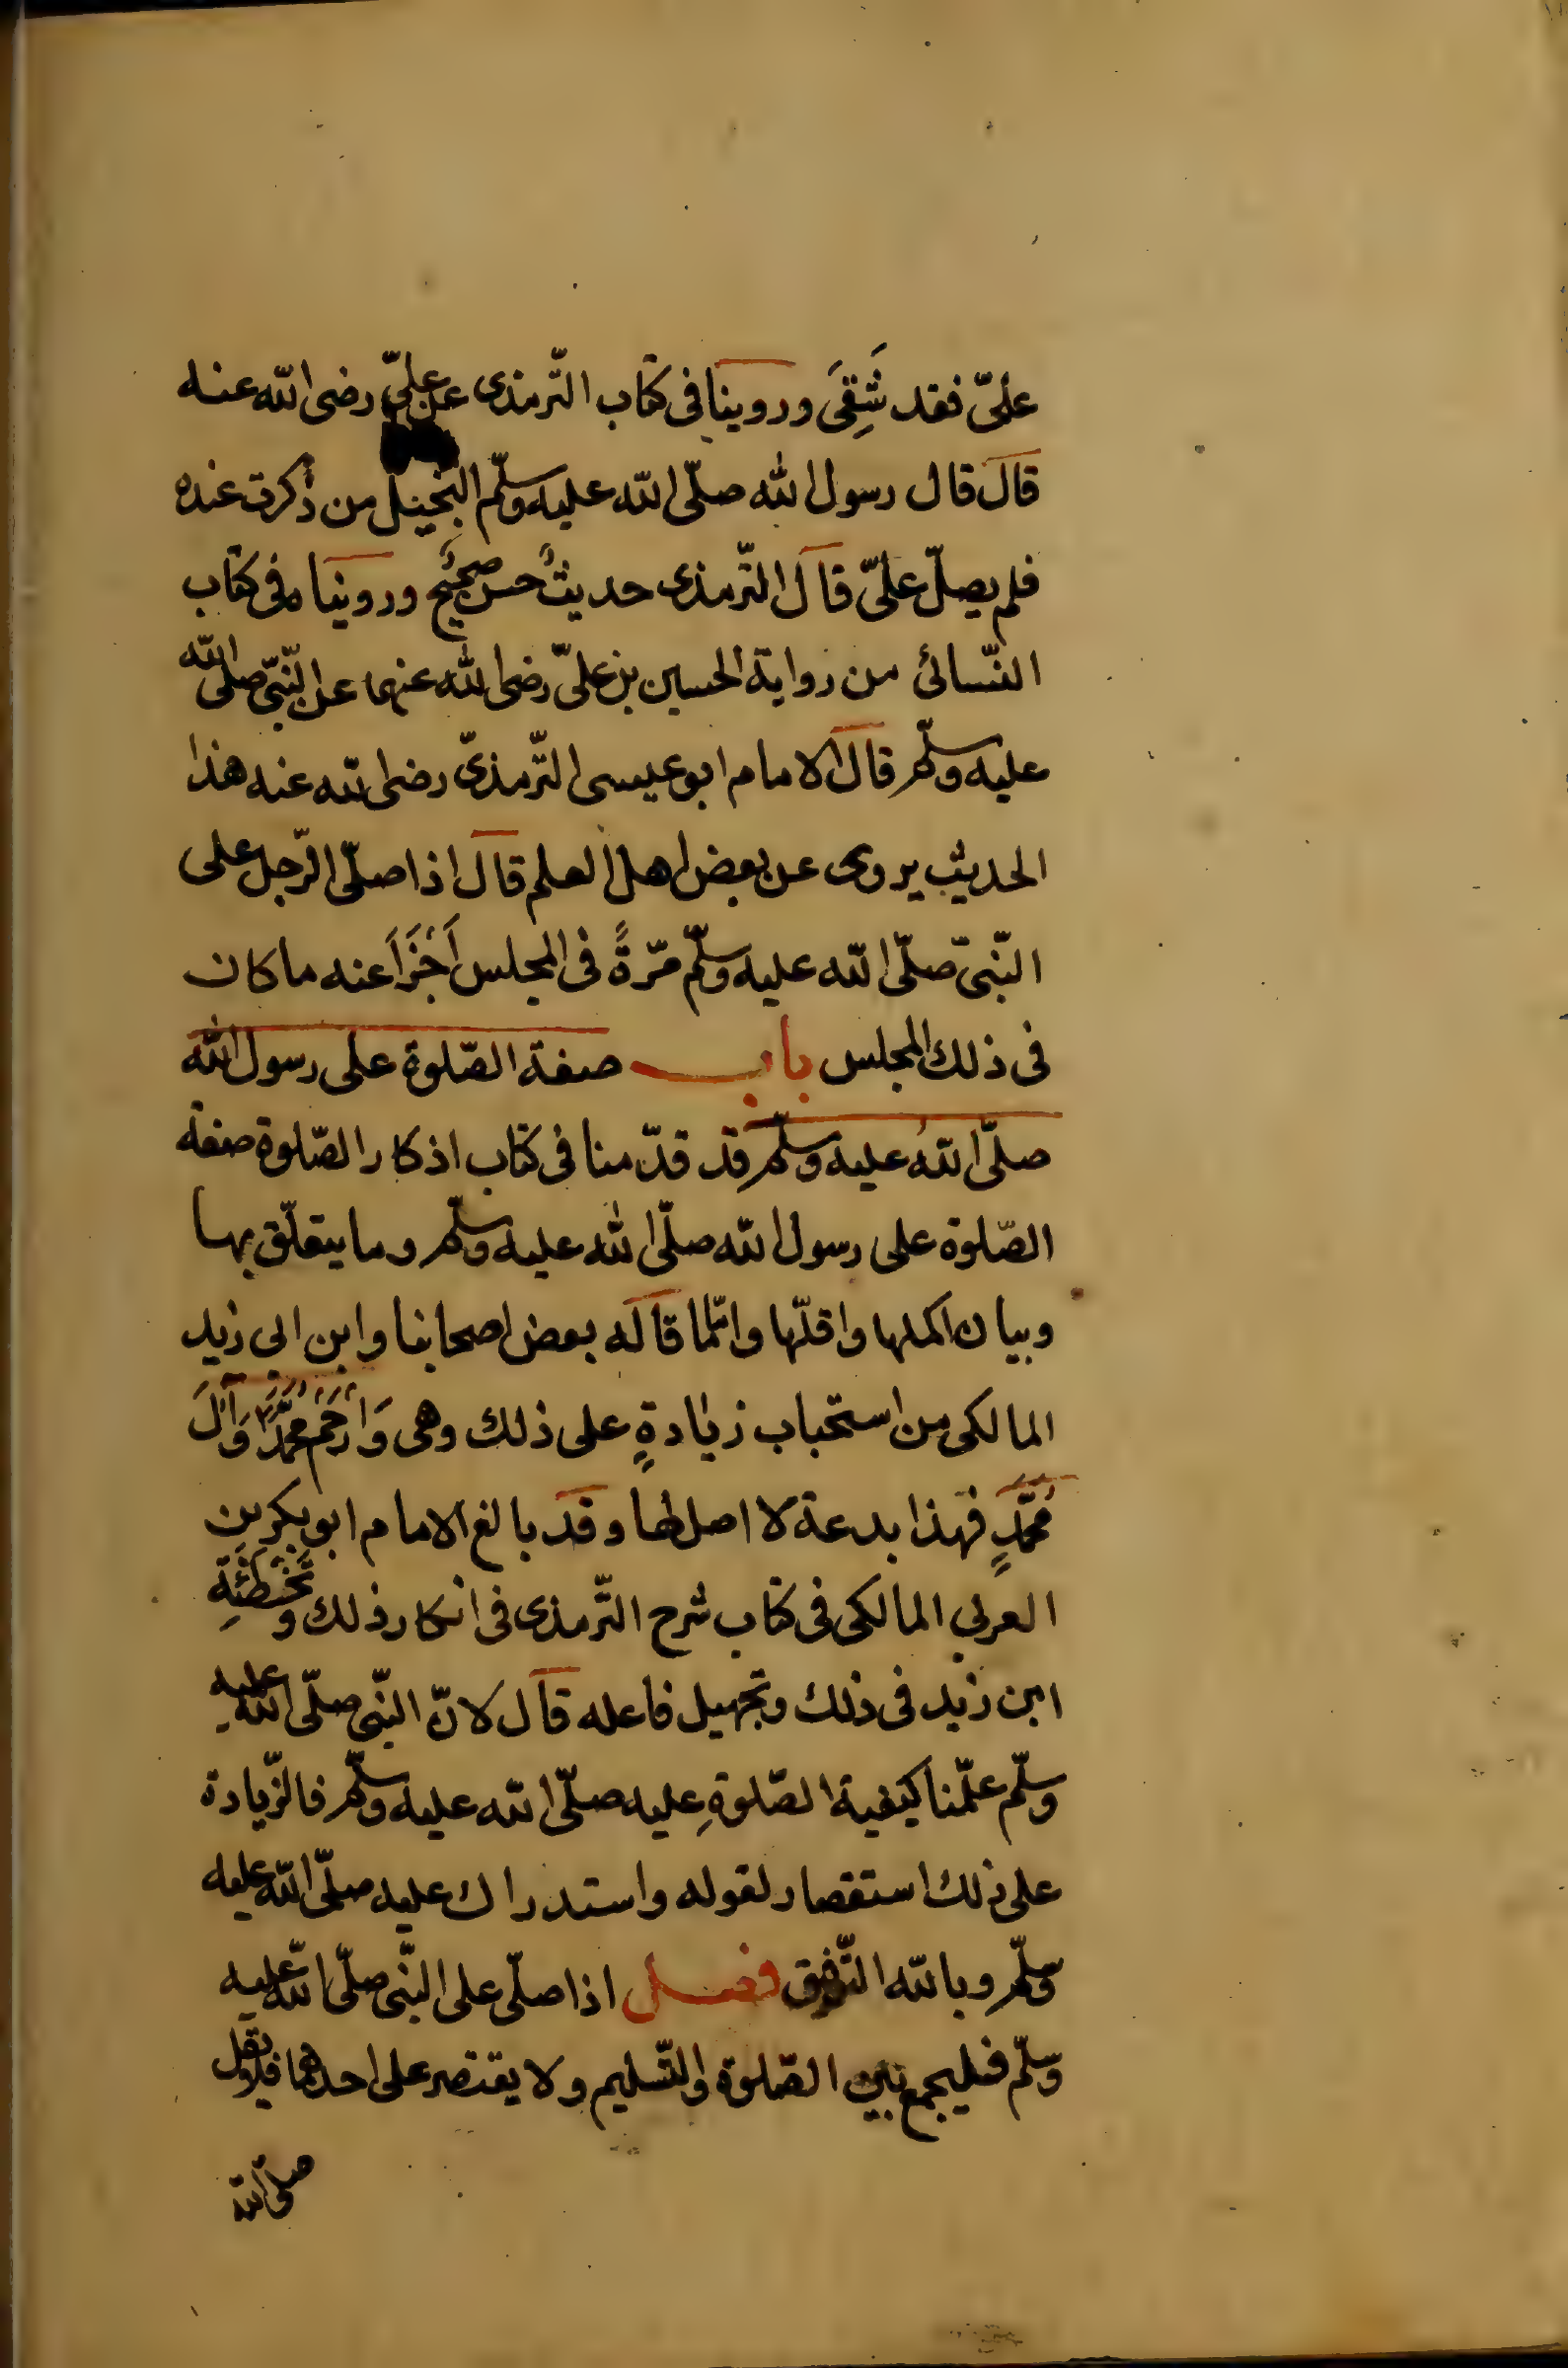 علىّ فقد شَقِىَ وروينا فى كتاب التّرمذى عن علىّ رضى الله عنه
قال قال رسول الله صلّى الله عليه وسلّم البخيل من ذُكرت عنده
فلم يصلّ علىّ قال التّرمذى حديثٌ حسن صحيحٌ وروينا فى كتاب
النّسائى من رواية الحسين بن علىّ رضى الله عنهما عن النّبىّ صلى الله
عليه وسلّم قال الامام ابو عيسى التّرمذىّ رضى الله عنه هذا
الحديث يروى عن بعض اهل العلم قال اذا صلّى الرّجل على
النّبىّ صلّى الله عليه وسلّم مرّةً فى المجلس اَجْزَاَ عنه ما كان
فى ذلك المجلس باب صفة الصّلوة على رسول الله
صلّى اللهُ عليه وسلّم قد قدّمنا فى كتاب اذكار الصّلوة صفة
الصّلوة على رسول الله صلّى الله عليه وسلّم وما يتعلّق بها
وبيان اكملها واقلّها وامّا ما قاله بعض اصحابنا وابن ابى زيد
المالكى من استحباب زيادةٍ على ذلك وهى وَارْحَمْ مُحَمَّدًا وَآلَ
مُحَمَّدٍ فهذا بدعة لا اصل لها وقد بالغ الامام ابو بكر بن
العربى المالكى فى كتاب شرح التّرمذى فى انكار ذلك وتَخْطِئَةِ
ابن زيد فى ذلك وتجهيل فاعله قال لانّ النّبى صلّى الله عليه
وسلّم علّمنا كيفية الصّلوةِ عليه صلّى الله عليه وسلّم فالزّيادة
على ذلك استقصار لقوله واستدراك عليه صلّى الله عليه
وسلّم وبالله التّوفيق فصل اذا صلّى على النّبى صلّى الله عليه
وسلّم فليجمع بين الصّلوة والتّسليم ولا يقتصر على احدهما فلا يقل
صلى الله